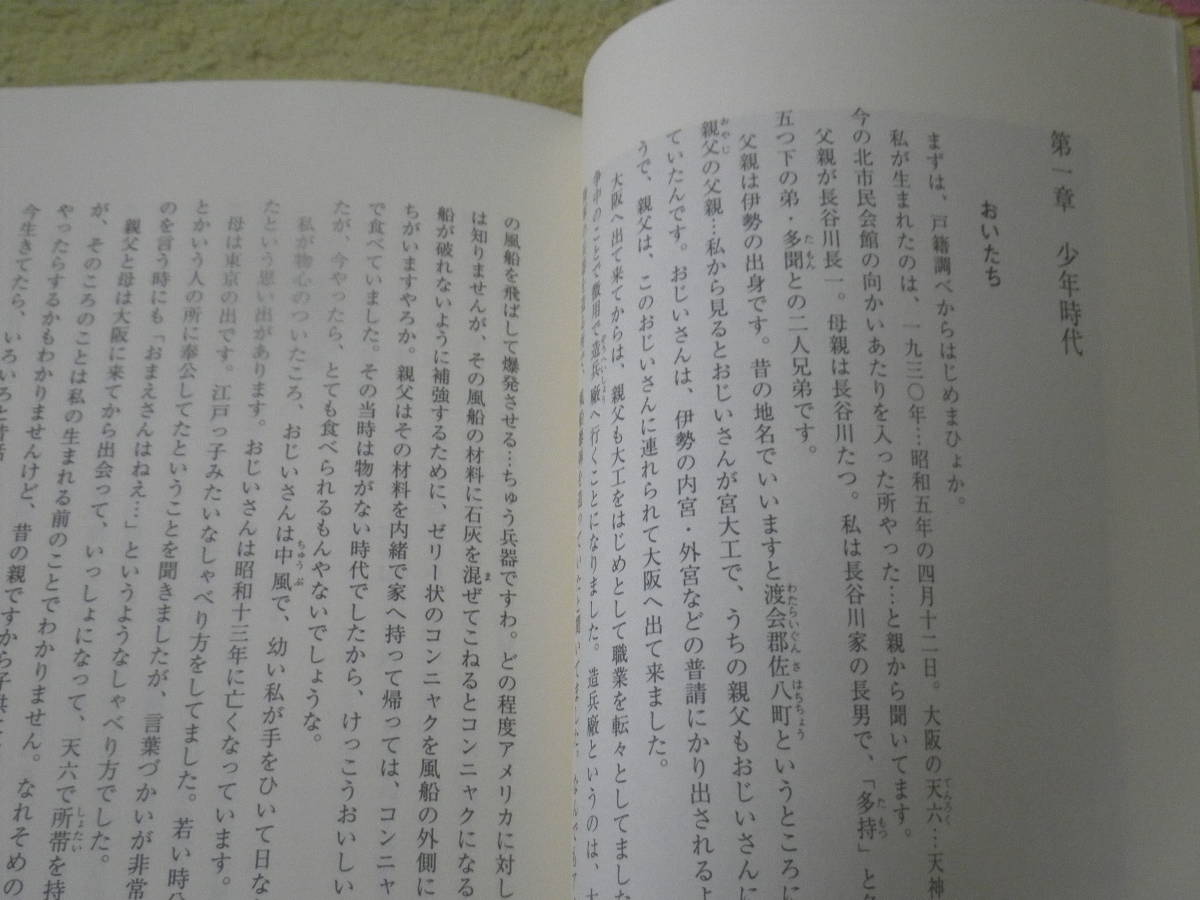 第一章 少年時代
おいたち
まずは、戸籍調べからはじめまひょか。
私が生まれたのは、一九三〇年…昭和五年の四月十二日。大阪の天六…天神
今の北市民会館の向かいあたりを入った所やった…と親から聞いてます。
父親が長谷川長一。母親は長谷川たつ。私は長谷川家の長男で、「多持」と
五つ下の弟・多聞との二人兄弟です。
父親は伊勢の出身です。昔の地名でいいますと渡会郡佐八町というところに
親父の父親…私から見るとおじいさんが宮大工で、うちの親父もおじいさんに
ていたんです。おじいさんは、伊勢の内宮・外宮などの普請にかり出されるよ
うで、親父は、このおじいさんに連れられて大阪へ出て来ました。
大阪へ出て来てからは、親父も大工をはじめとして職業を転々としてました
争中のことで徴用で造兵廠へ行くことになりました。造兵廠というのは、大
の風船を飛ばして爆発させる…ちゅう兵器ですわ。どの程度アメリカに対し
は知りませんが、その風船の材料に石灰を混ぜてこねるとコンニャクになる
船が破れないように補強するために、ゼリー状のコンニャクを風船の外側に
ちがいますやろか。親父はその材料を内緒で家へ持って帰っては、コンニャ
で食べていました。その当時は物がない時代でしたから、けっこうおいしい
たが、今やったら、とても食べられるもんやないでしょうな。
私が物心のついたころ、おじいさんは中風で、幼い私が手をひいて日な
たという思い出があります。おじいさんは昭和十三年に亡くなっています。
母は東京の出です。江戸っ子みたいなしゃべり方をしてました。若い時分
とかいう人の所に奉公してたということを聞きましたが、言葉づかいが非常
のを言う時にも「おまえさんはねえ…」というようなしゃべり方でした。
親父と母は大阪に来てから出会って、いっしょになって、天六で所帯を持
が、そのころのことは私の生まれる前のことでわかりません。なれそめの
やったらするかもわかりませんけど、昔の親ですから子供に
今生きてたら、いろいろと昔話